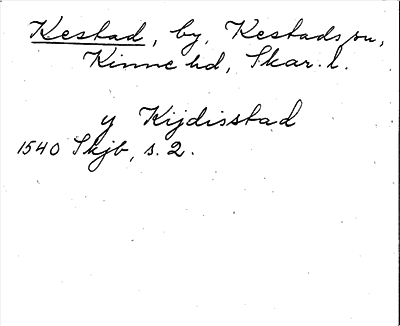 Kestad, by, Kestads sn,
Kinne hd, Skar. l.
y Kijdisstad
1540 Skjb, s. 2.